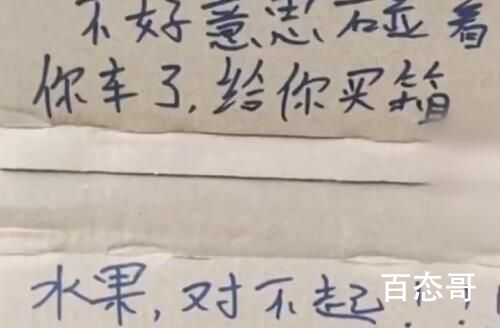 不好意思碰着
你车了,给你买箱
水果,对不起!!
百态哥